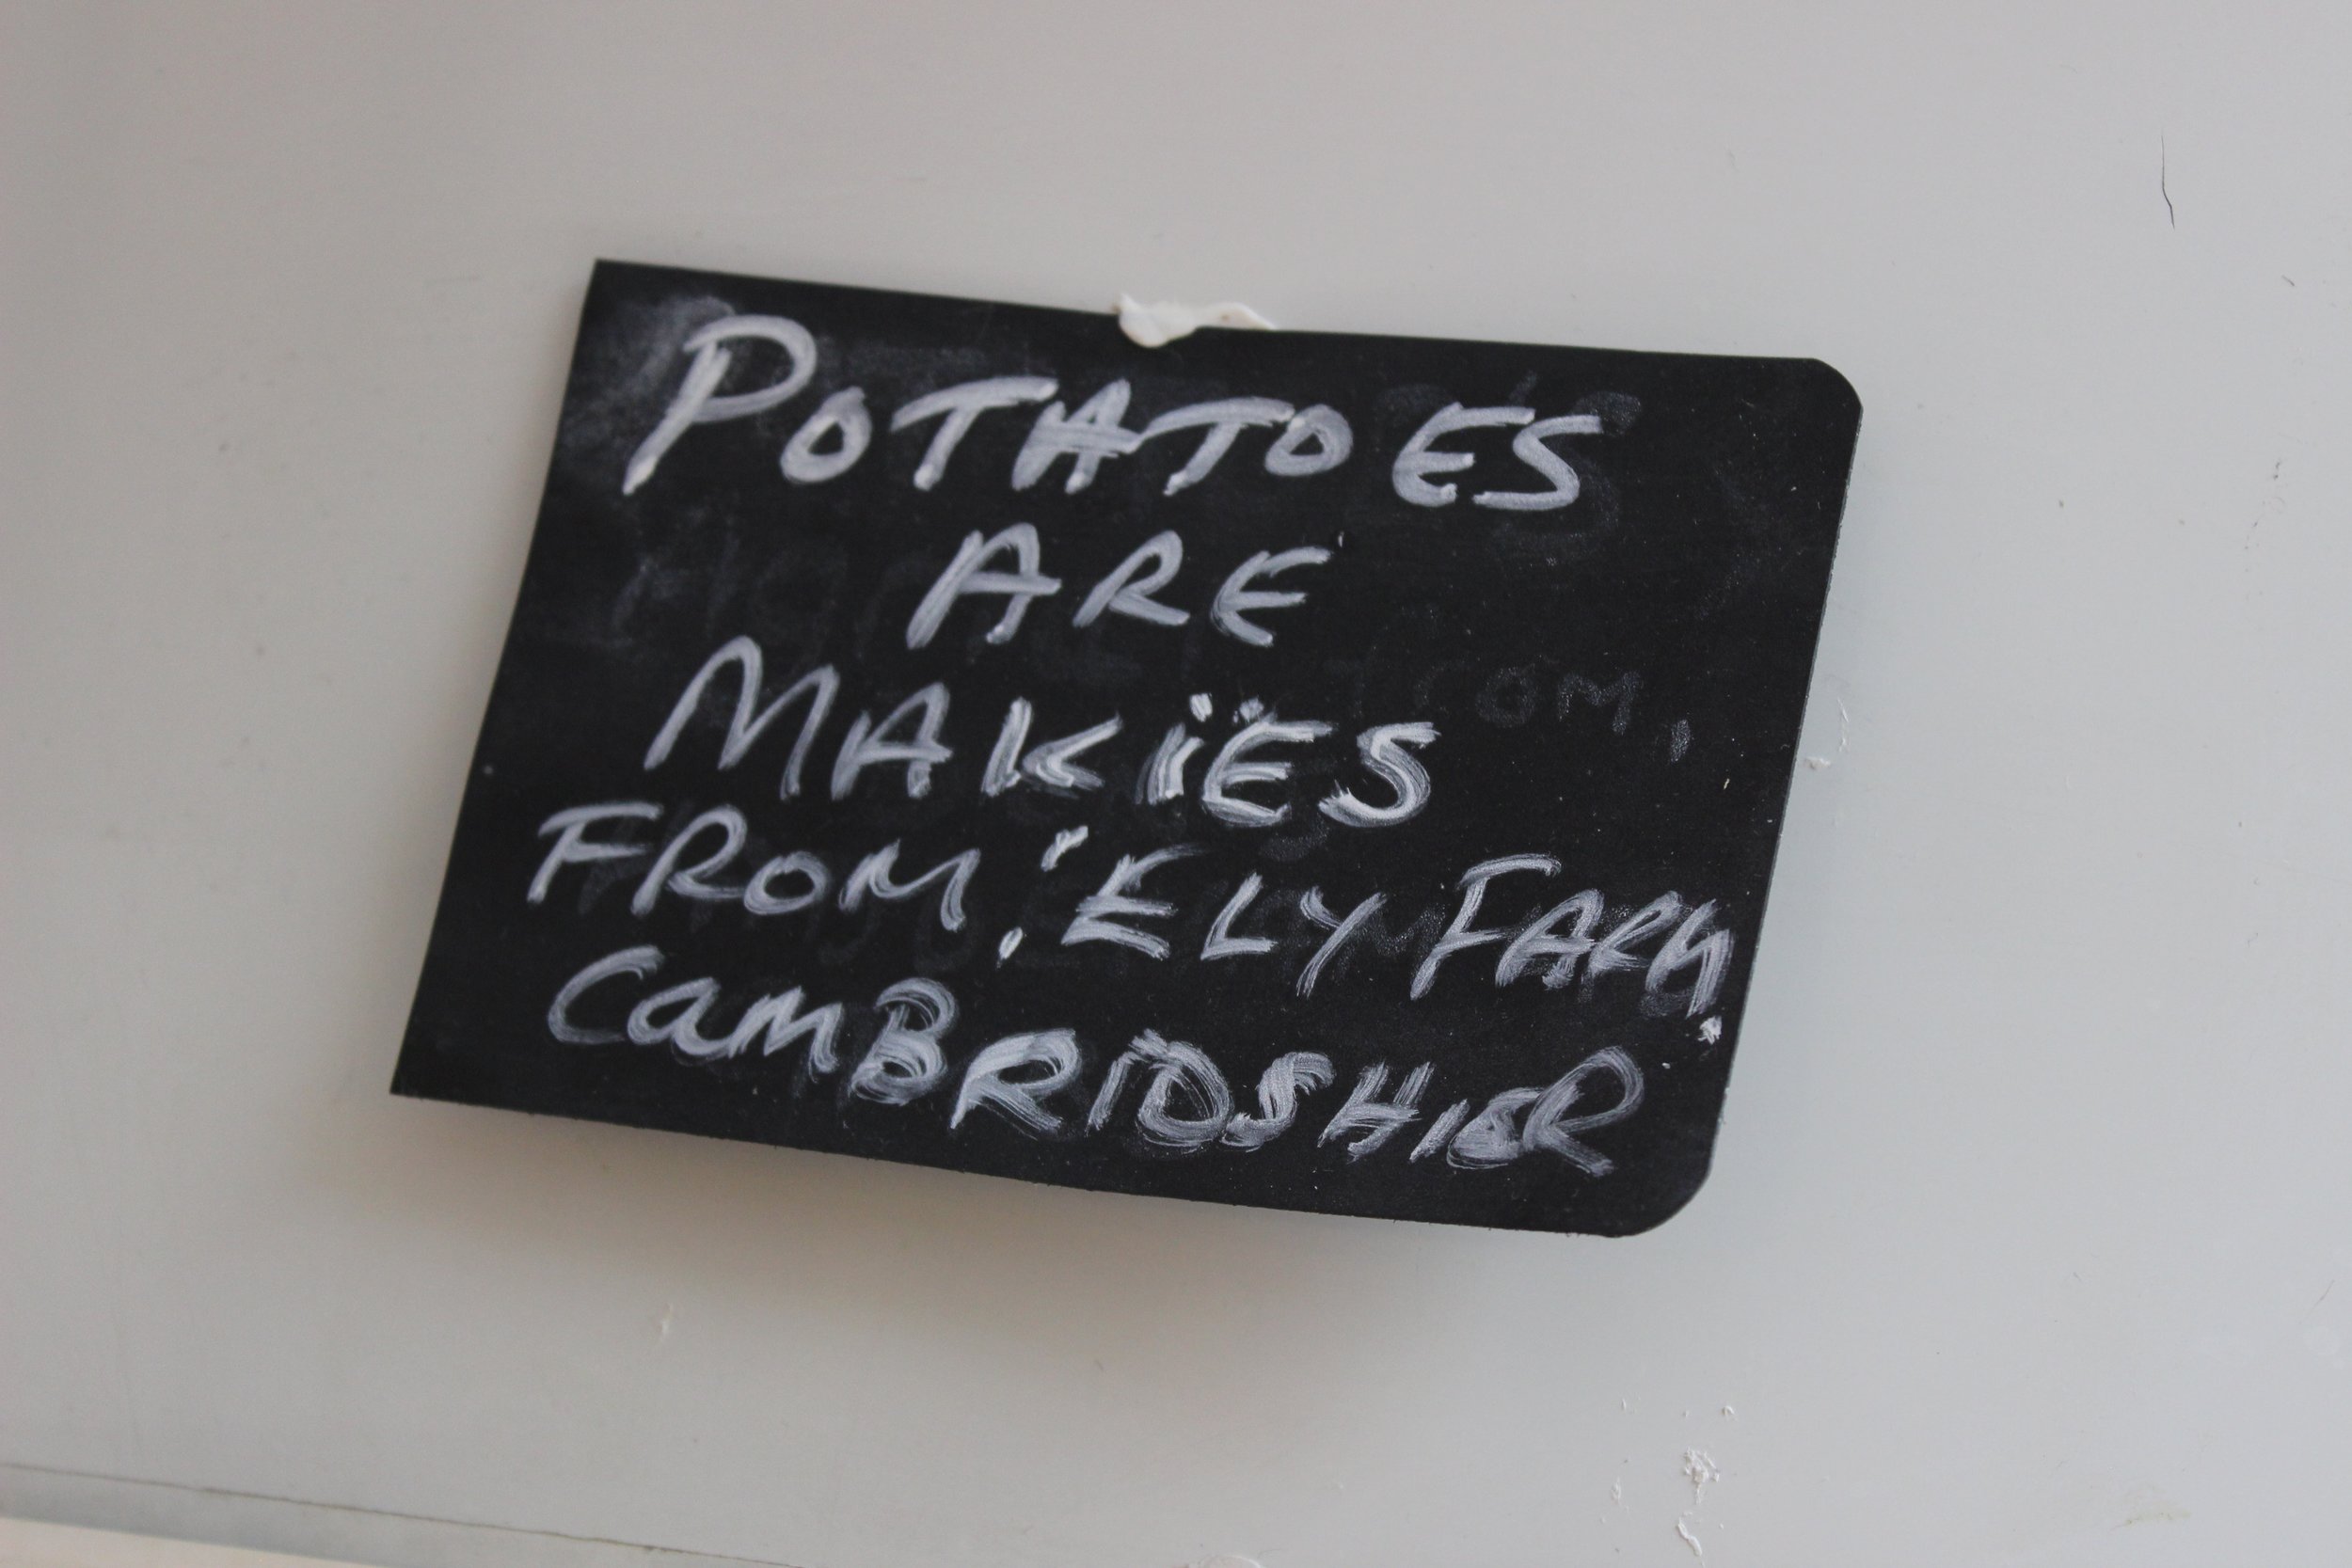 POTATOES
ARE
MAKiES
FROM: ELY FARM.
CamBRiDSHiER